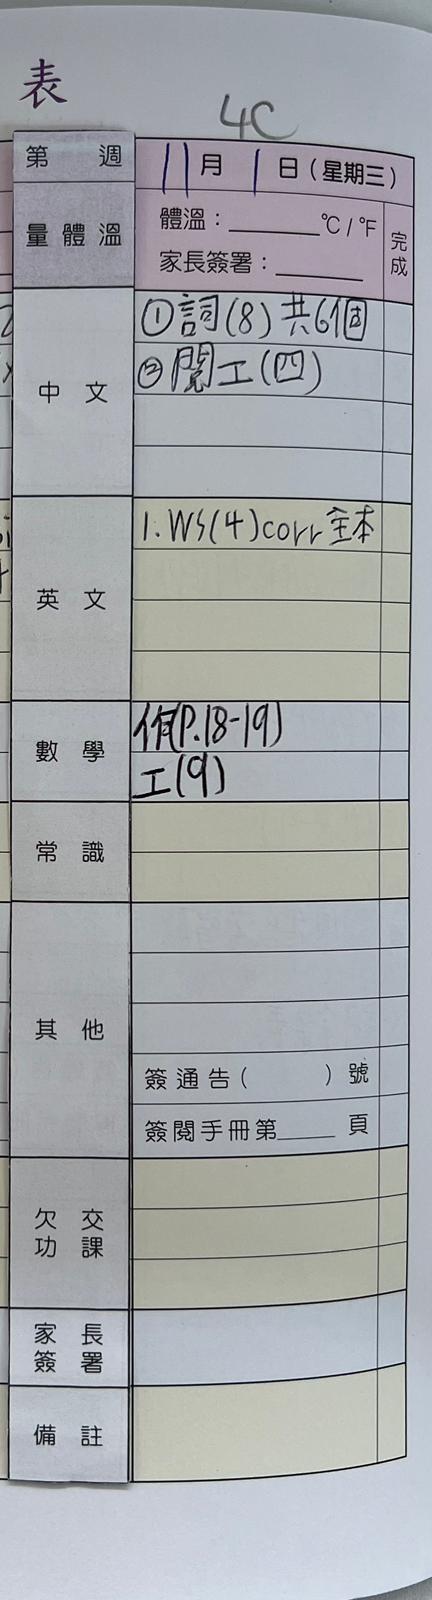 表
4C
第 週 11月1日(星期三)
量體溫 體溫：______°C/°F 完成
家長簽署：______
中文 ①詞(8)共6個
②閱工(四)
英文 1. WS(4)corr 全本
數學 作(P.18-19)
工(9)
常識
其他
簽通告( )號
簽閱手冊第____頁
欠交
功課
家長
簽署
備註